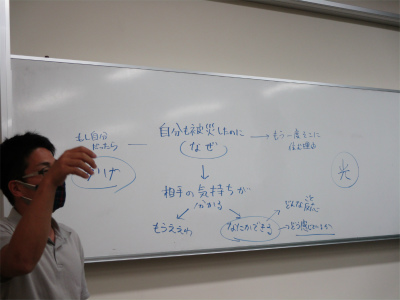 もし自分
だったら
自分も被災したのに
なぜ
もう一度そこに
住む理由
光
相手の気持ちが
わかる
もうええわ
なにかできる
どんな
こと
どう感じ